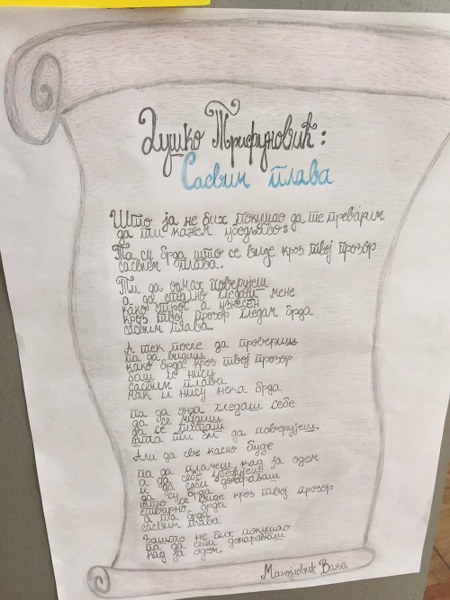 Душко Трифуновић:
Сасвим плава
Што ја не бих покушао да те преварим
да ти кажем убедљиво:
Та су брда што се виде кроз твој прозор
сасвим плава.
Ти да одмах поверујеш
а да стално гледаш мене
како строг и узнесен
кроз твој прозор гледам брда
сасвим плава.
А тек после да провериш
па да видиш
како брда кроз твој прозор
баш и нису
сасвим плава
чак и нису нека брда
па да онда гледаш себе
да се мучиш
да се питаш
шта ти би да поверујеш.
Али да све касно буде
па да плачеш кад ја одем
а да себе убеђујеш
и да себи дочараваш
да су брда
што се виде кроз твој прозор
стварно брда
а та брда
сасвим плава
Зашто не бих покушао
па да себи дочараваш
кад ја одем
Вања